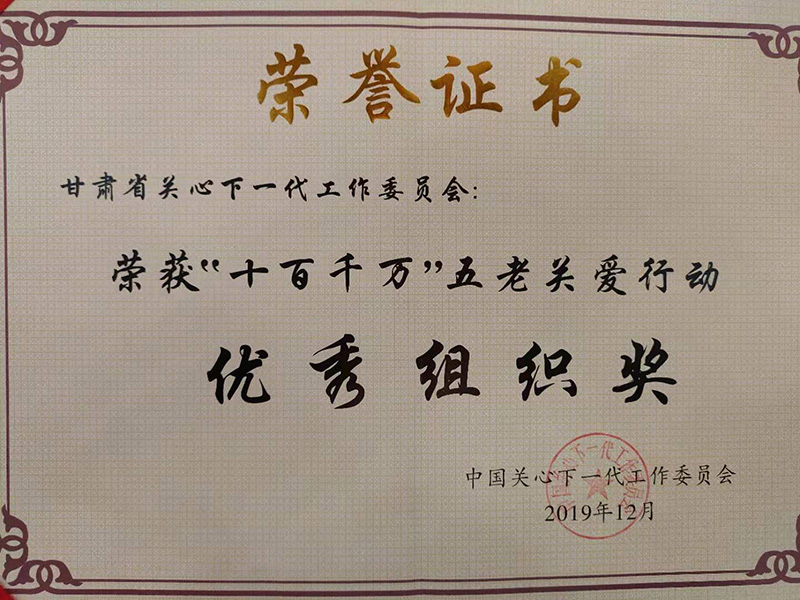 荣誉证书
甘肃省关心下一代工作委员会:
荣获“十百千万”五老关爱行动
优秀组织奖
中国关心下一代工作委员会
2019年12月